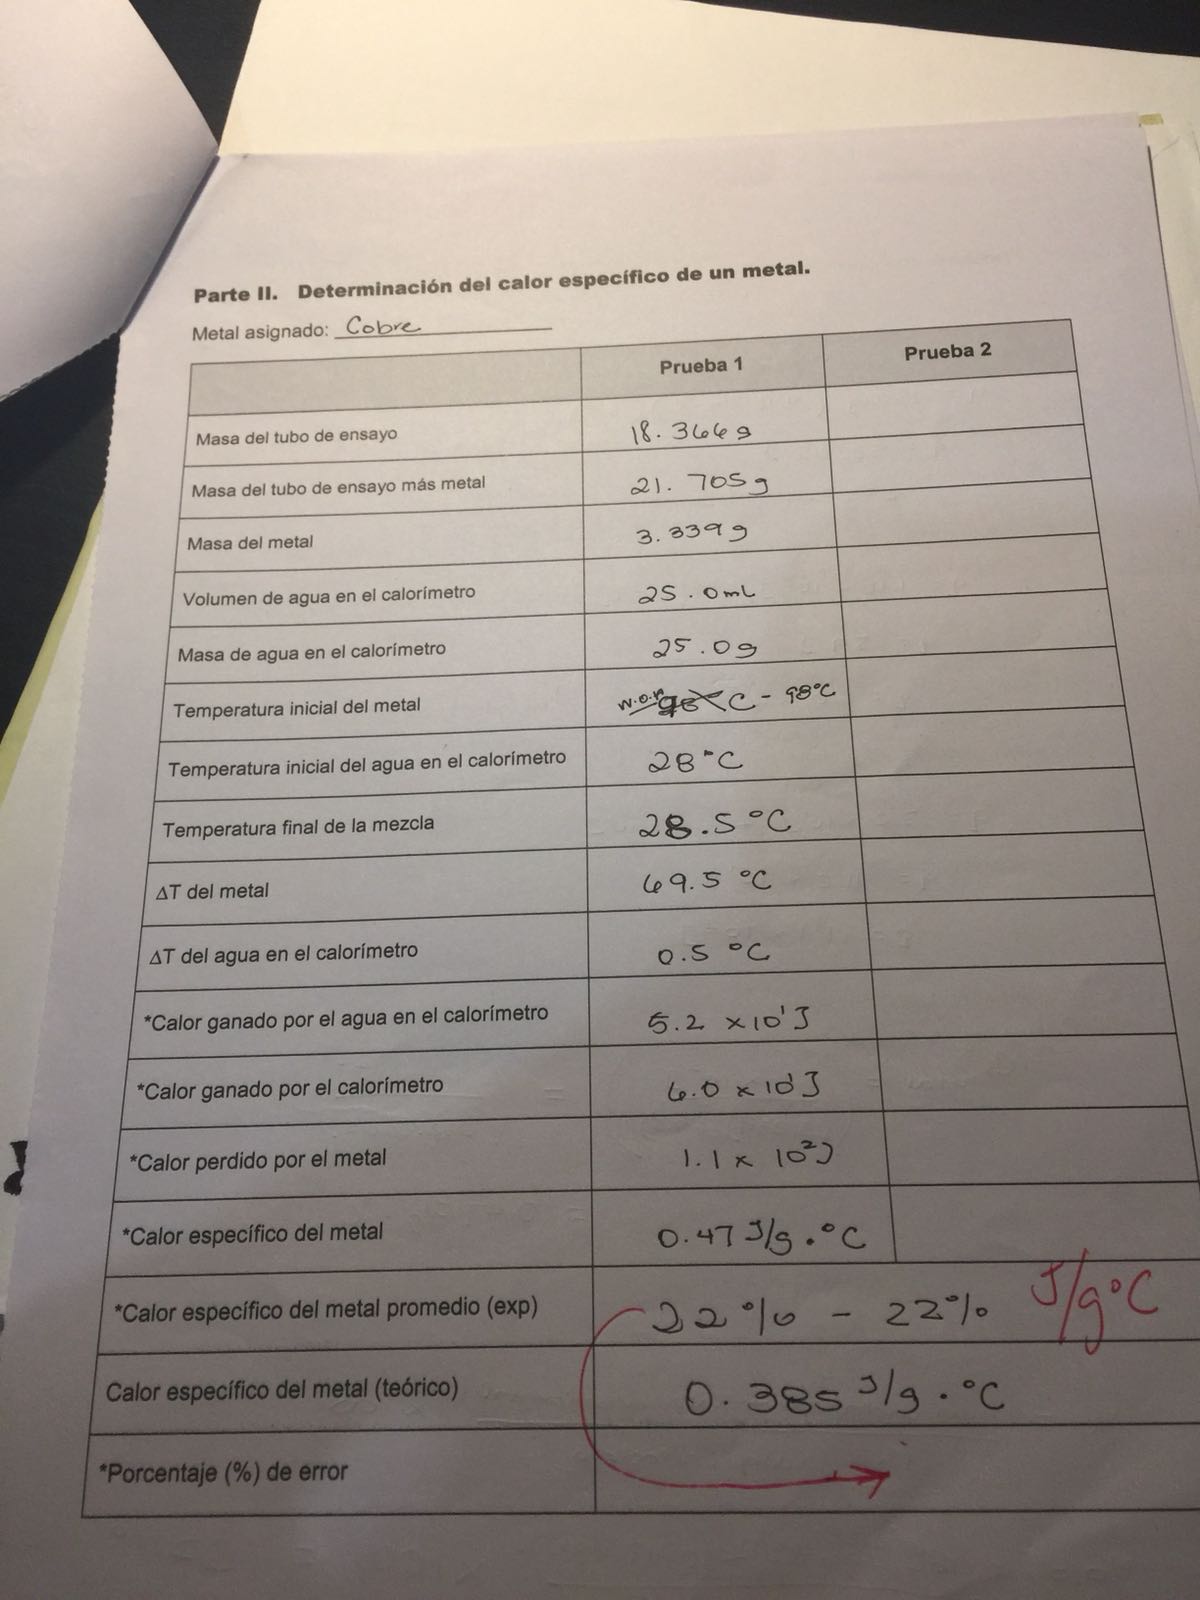 Parte II. Determinación del calor específico de un metal.
Metal asignado: Cobre
Prueba 1 Prueba 2
Masa del tubo de ensayo 18.366g
Masa del tubo de ensayo más metal 21.705g
Masa del metal 3.339g
Volumen de agua en el calorímetro 25.0mL
Masa de agua en el calorímetro 25.0g
Temperatura inicial del metal C - 98°C
Temperatura inicial del agua en el calorímetro 28°C
Temperatura final de la mezcla 28.5°C
ΔT del metal 69.5 °C
ΔT del agua en el calorímetro 0.5 °C
*Calor ganado por el agua en el calorímetro 5.2 x10¹J
*Calor ganado por el calorímetro 6.0 x10¹J
*Calor perdido por el metal 1.1 x 10²J
*Calor específico del metal 0.47 J/g.°C
*Calor específico del metal promedio (exp) 22% - 22% J/g°C
Calor específico del metal (teórico) 0.385 J/g.°C
*Porcentaje (%) de error